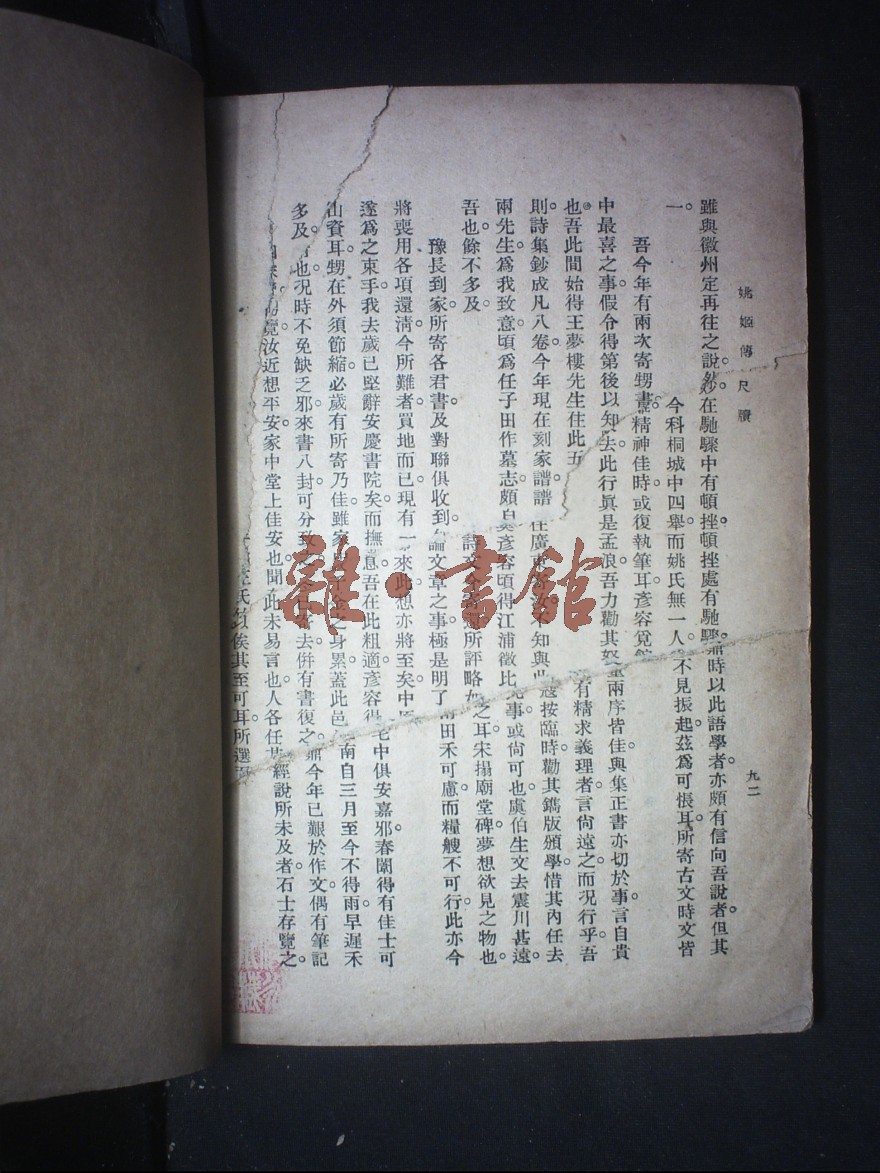 姚姬傳尺牘
九二
雖與徽州定再往之說。然妙在馳驟中有頓挫。頓挫處有馳驟。時以此語學者。亦頗有信向吾說者。但其
一。
今科桐城中四舉。而姚氏無一人。不見振起。茲為可悵耳。所寄古文時文皆
吾今年有兩次寄甥書。精神佳時。或復執筆耳。彥容覓館
兩序皆佳。與集正書亦切於事。言自貴
中最喜之事。假令得第後以知
去。此行眞是孟浪。吾力勸其
有精求義理者。言尙遠之。而况行乎。吾
也。吾此間始得王夢樓先生住此。五
按臨時勸其鐫版頒學。惜其內任去
則詩集鈔成凡八卷。今年現在刻家譜。譜
不知與
事或尙可也。虞伯生文去震川甚遠。
兩先生為我致意。頃為任子田作墓志。頗
彥容頃得江浦徵比
之耳。宋搨廟堂碑。夢想欲見之物也。
吾也。餘不多及。
所評略
豫長到家。所寄各君書及對聯俱收到。
論文章之事。極是明了
田禾可慮。而糧艘不可行。此亦今
將喪用各項還清。今所難者買地而已。現有一
來此。想亦將至矣。中
宅中俱安。嘉邪。春闈得有佳士可
遂為之束手。我去歲已堅辭安慶書院矣。而撫
息。吾在此粗適。彥容得
南自三月至今不得雨。早遲禾
山資耳。甥在外須節縮。必歲有所寄乃佳。雖家
之身累。蓋此邑
今年已艱於作文。偶有筆記
多及。
也。况時不免缺乏邪。來書八封。可分致
寄去。併有書復之。
經說所未及者。石士存覽之。
覽。汝近想平安。家中堂上佳安也。聞
此未易言也。人各任
氏。以俟其至可耳。所選
雜·書館